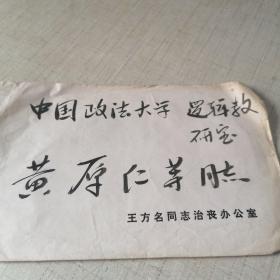 中国政法大学 逻辑教
研室
黄厚仁等同志
王方名同志治丧办公室